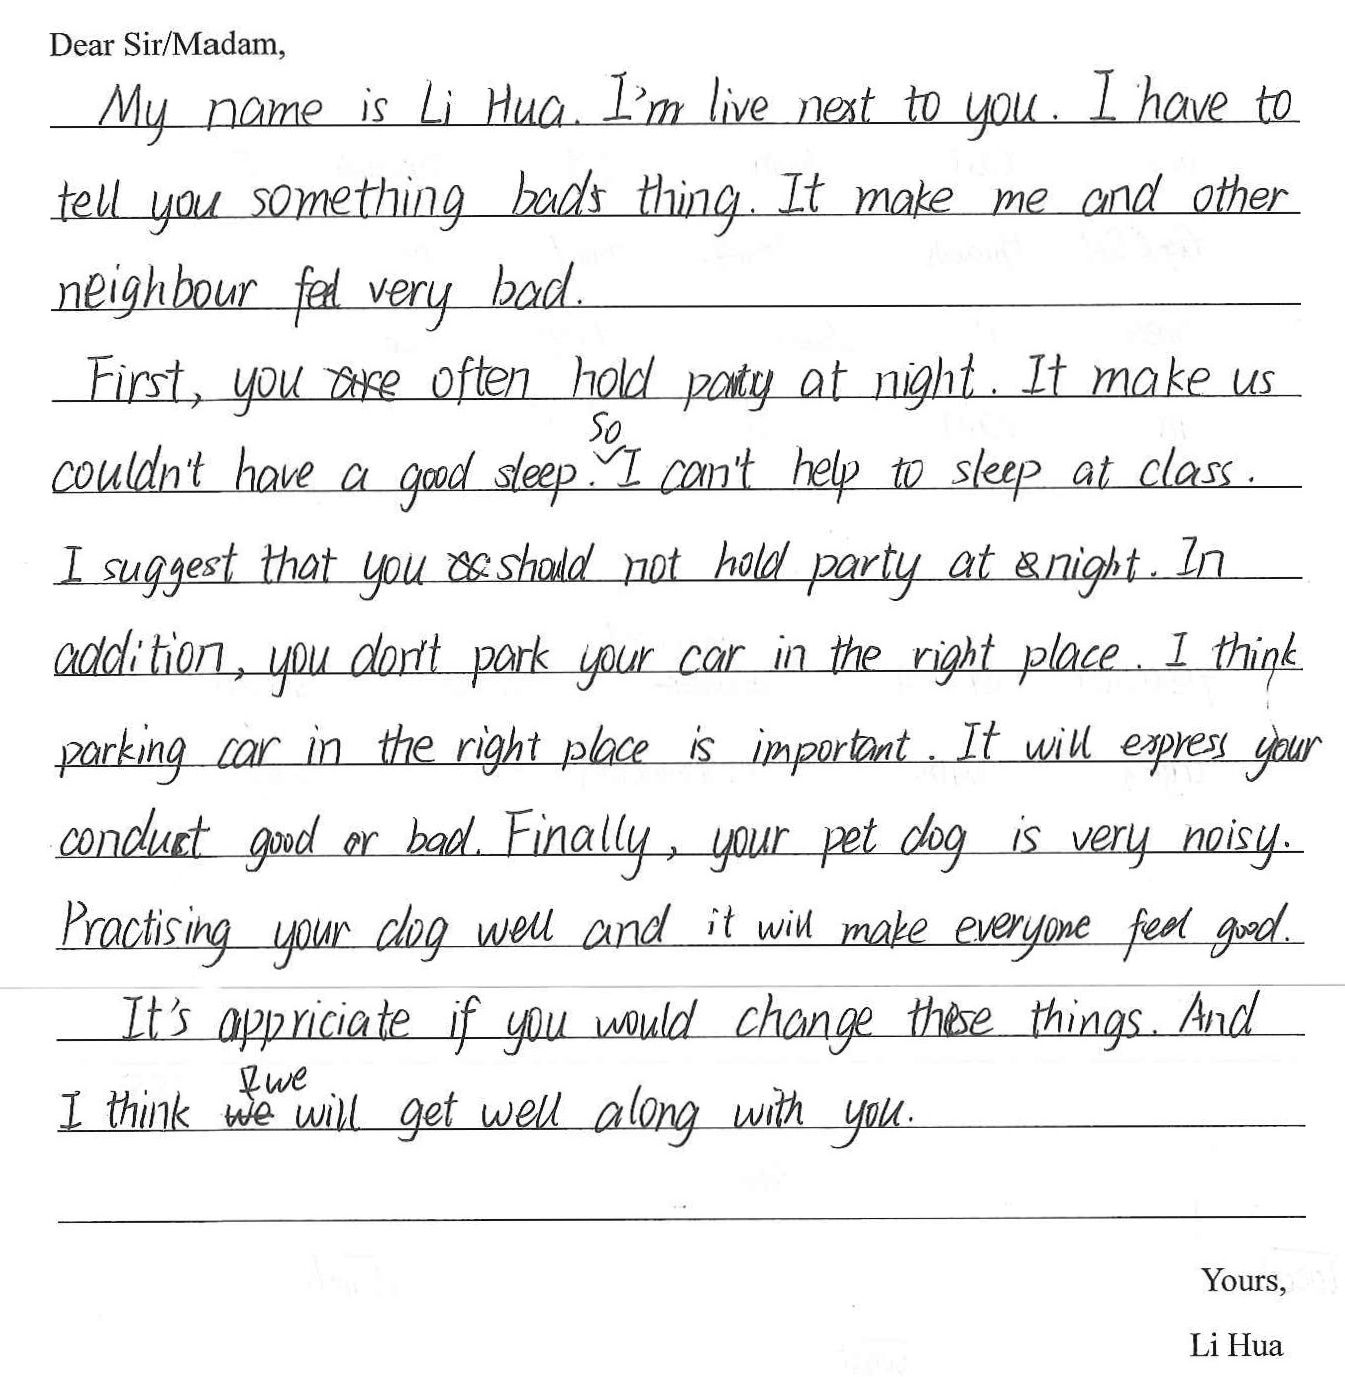 Dear Sir/Madam,
My name is Li Hua. I'm live next to you. I have to
tell you something bads thing. It make me and other
neighbour feel very bad.
First, you often hold party at night. It make us
couldn't have a good sleep. So I can't help to sleep at class.
I suggest that you should not hold party at night. In
addition, you don't park your car in the right place. I think
parking car in the right place is important. It will express your
conduct good or bad. Finally, your pet dog is very noisy.
Practising your dog well and it will make everyone feel good.
It's appriciate if you would change these things. And
I think we will get well along with you.
Yours,
Li Hua